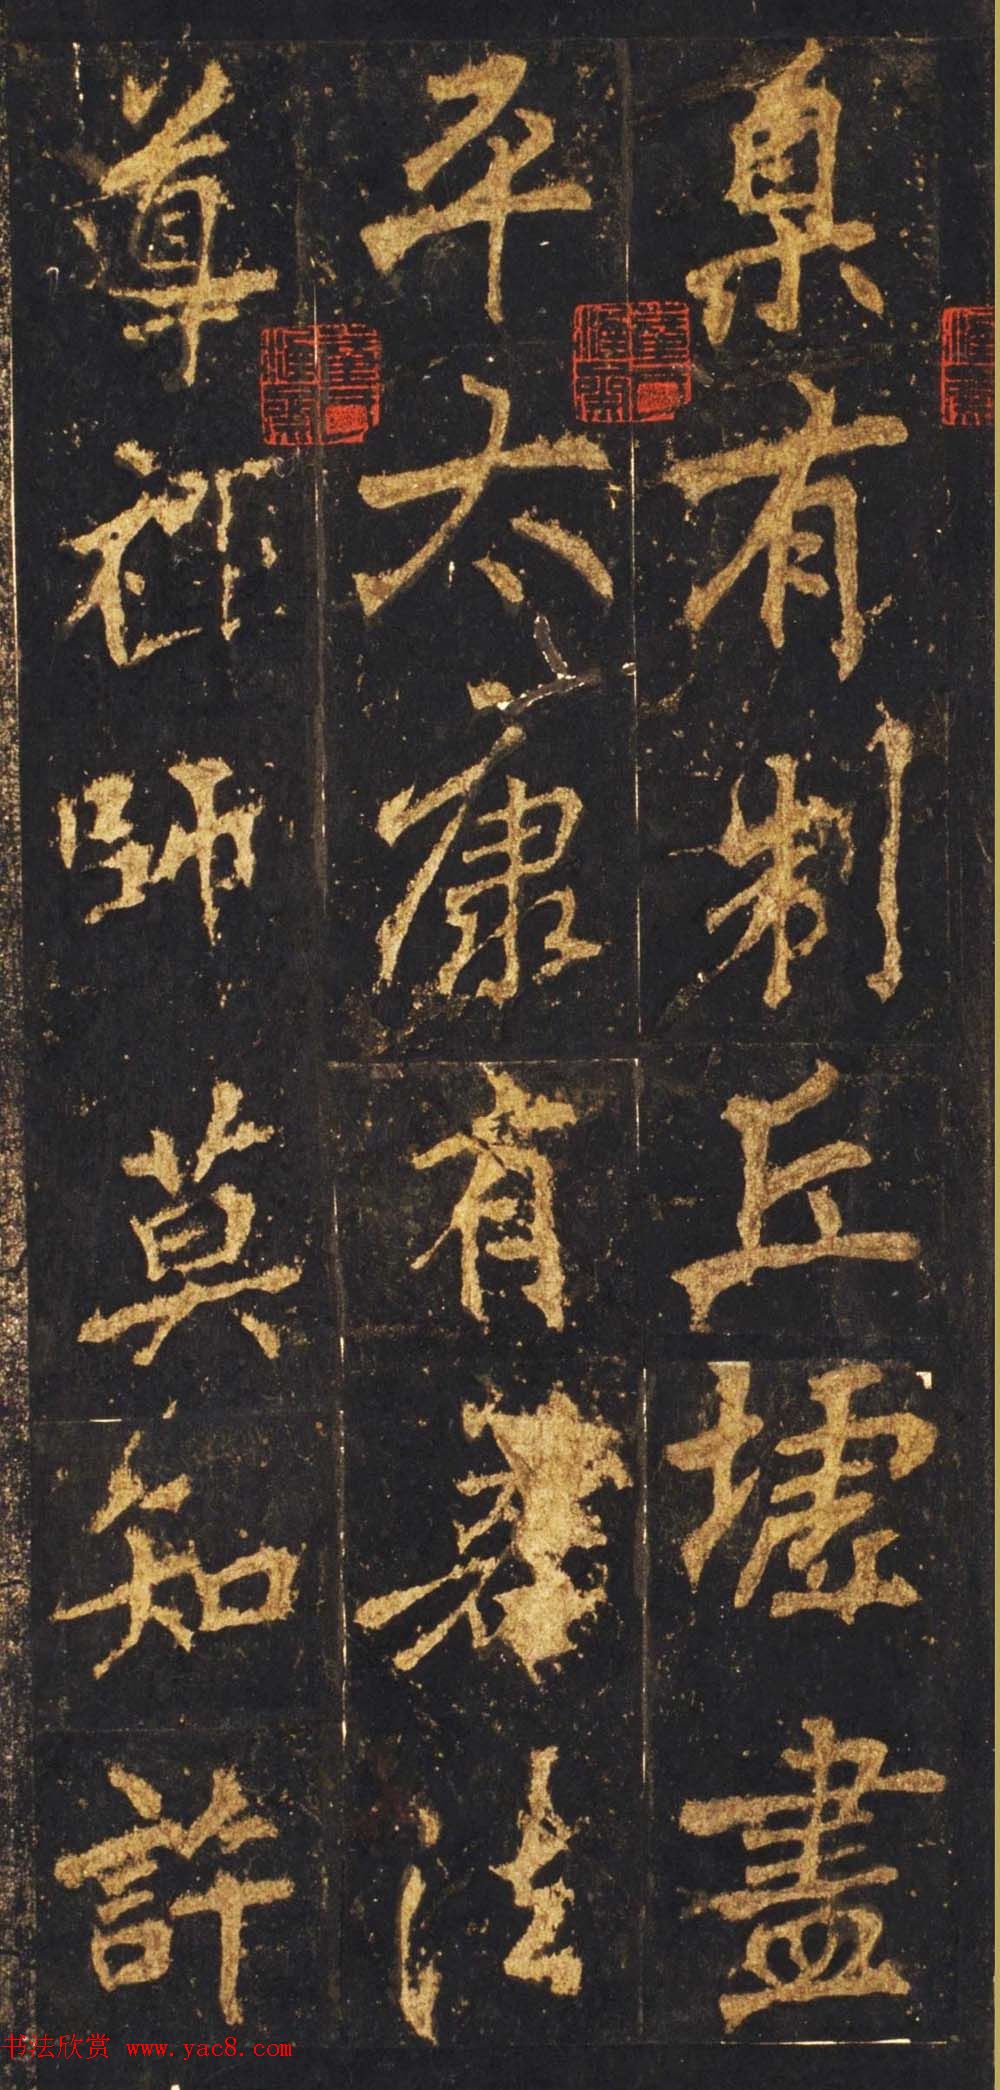 臬有制丘墟盡
平太康有若法
導禪師莫知許
书法欣赏 www.yac8.com